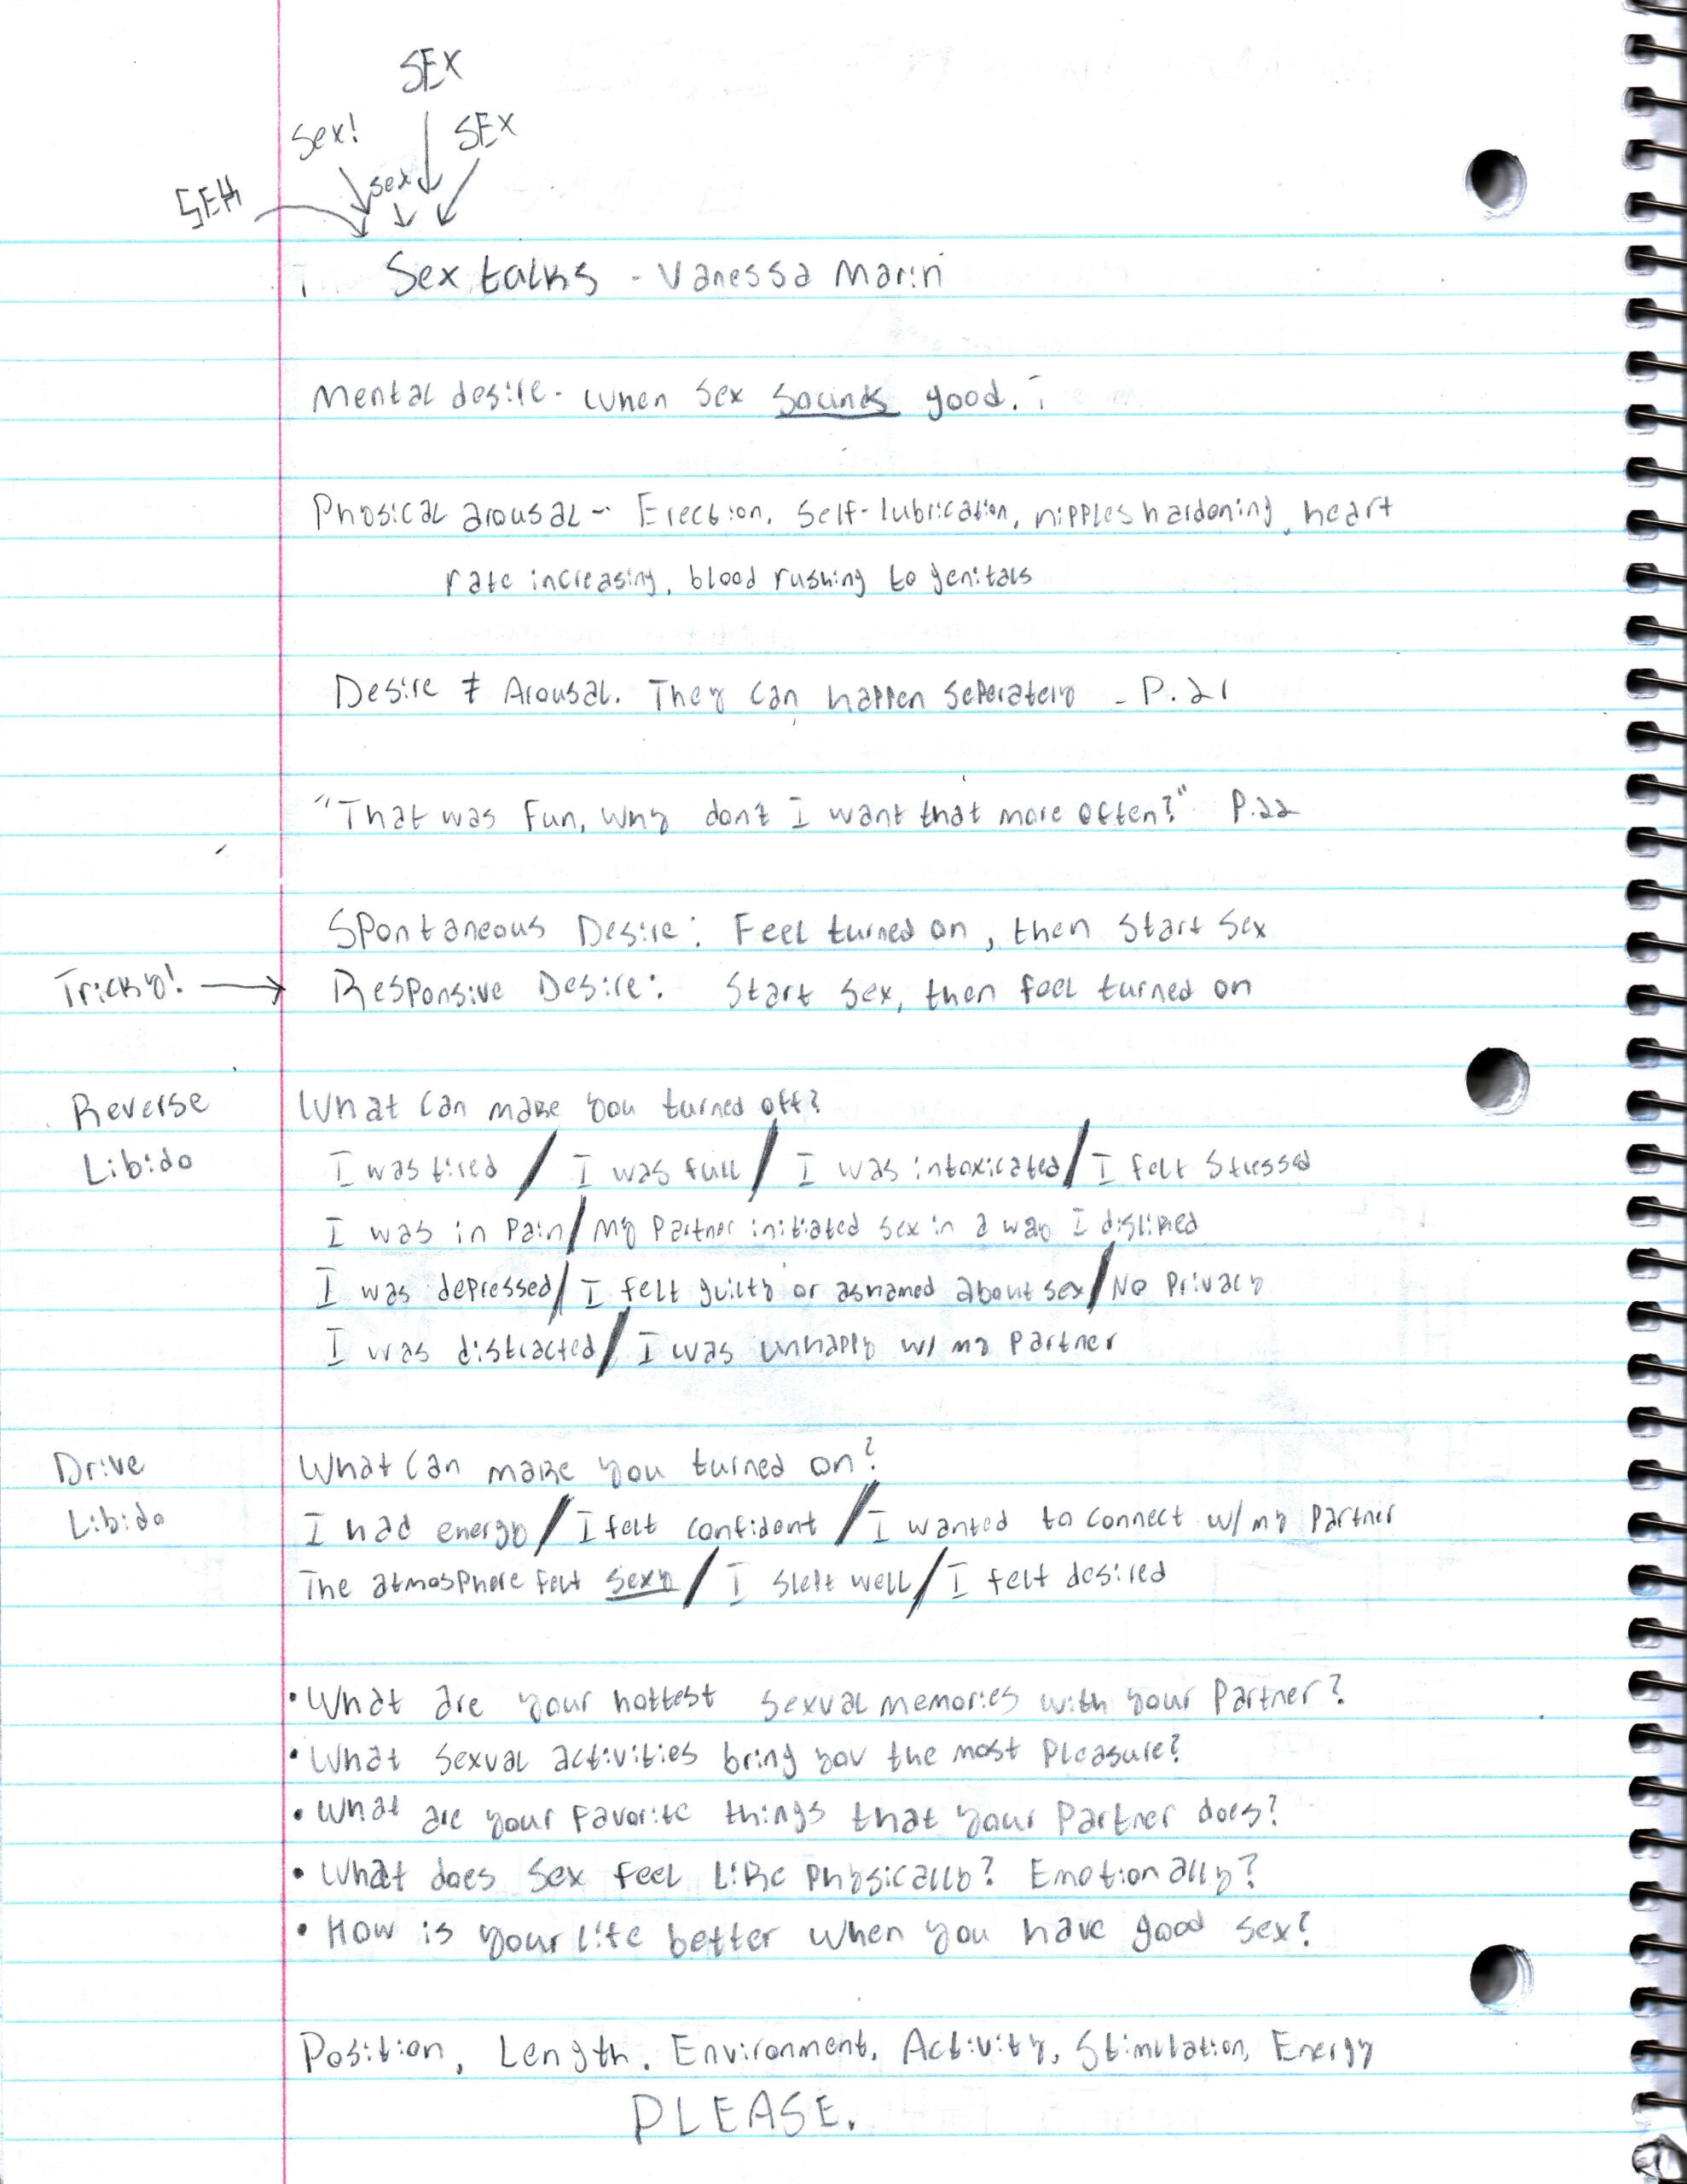 SEX
Sex! SEX
sex
SEH
Sex talks - Vanessa Marin
Mental desire - When Sex Sounds good.
Physical arousal - Erection, Self-lubrication, nipples hardening, heart
rate increasing, blood rushing to genitals
Desire ≠ Arousal. They can happen seperately - P.21
"That was Fun, Why don't I want that more often?" P.22
Spontaneous Desire: Feel turned on, then Start Sex
Tricky! → Responsive Desire: Start Sex, then feel turned on
Reverse What can make you turned off?
Libido I was tired / I was full / I was intoxicated / I felt Stressed
I was in Pain / My Partner initiated sex in a way I disliked
I was depressed / I felt guilty or ashamed about sex / No Privacy
I was distracted / I was unhappy w/ my Partner
Drive What can make you turned on?
Libido I had energy / I felt confident / I wanted to connect w/ my Partner
The atmosphere felt sexy / I slept well / I felt desired
• What are your hottest sexual memories with your Partner?
• What Sexual activities bring you the most Pleasure?
• What are your Favorite things that your Partner does?
• What does Sex feel like Physically? Emotionally?
• How is your life better when you have good sex?
Position, Length, Environment, Activity, Stimulation, Energy
PLEASE.